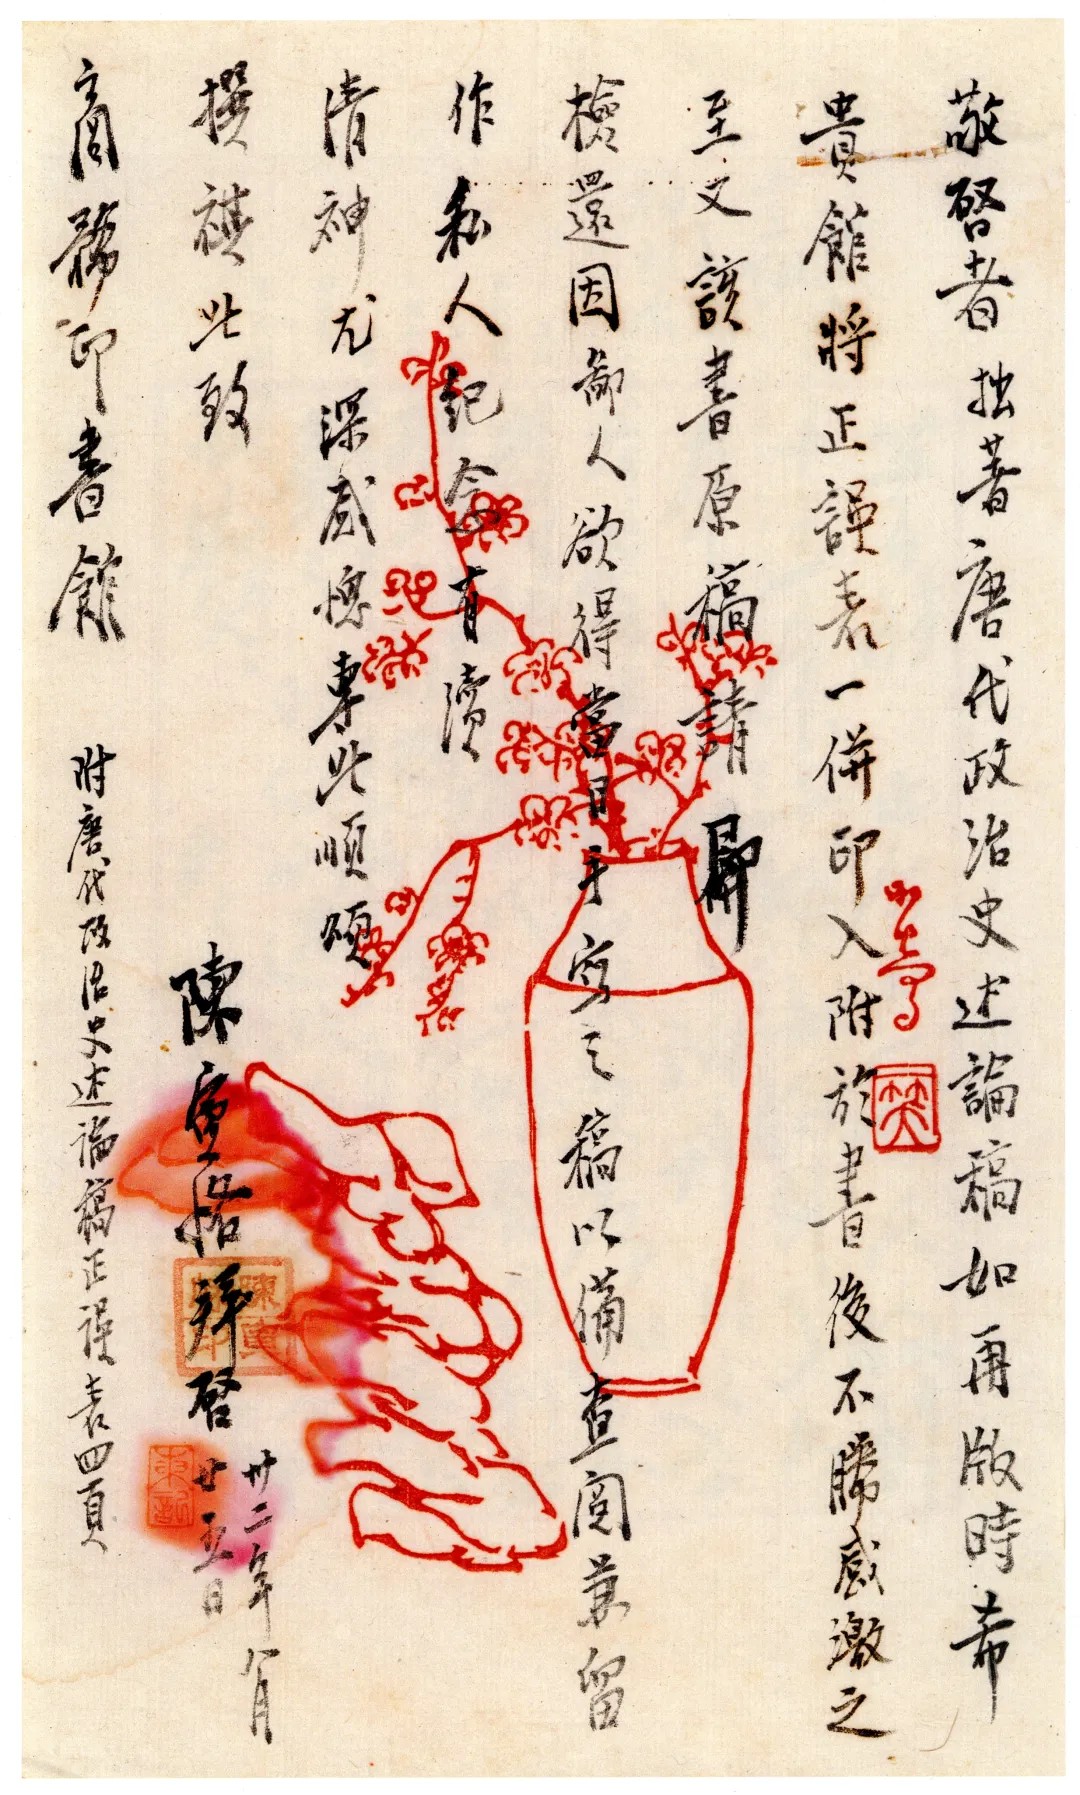 敬啓者拙著唐代政治史述論稿如再版時希
貴館將正誤表一併印入附於書後不勝感激之
至又該書原稿請即
檢還因鄙人欲得當日手寫之稿以備查閱兼留
作私人記念有瀆
清神尤深感愧專此順頌
撰祺此致
商務印書館
陳寅恪拜啓
卅二年八月
廿五日
附唐代政治史述論稿正誤表四頁